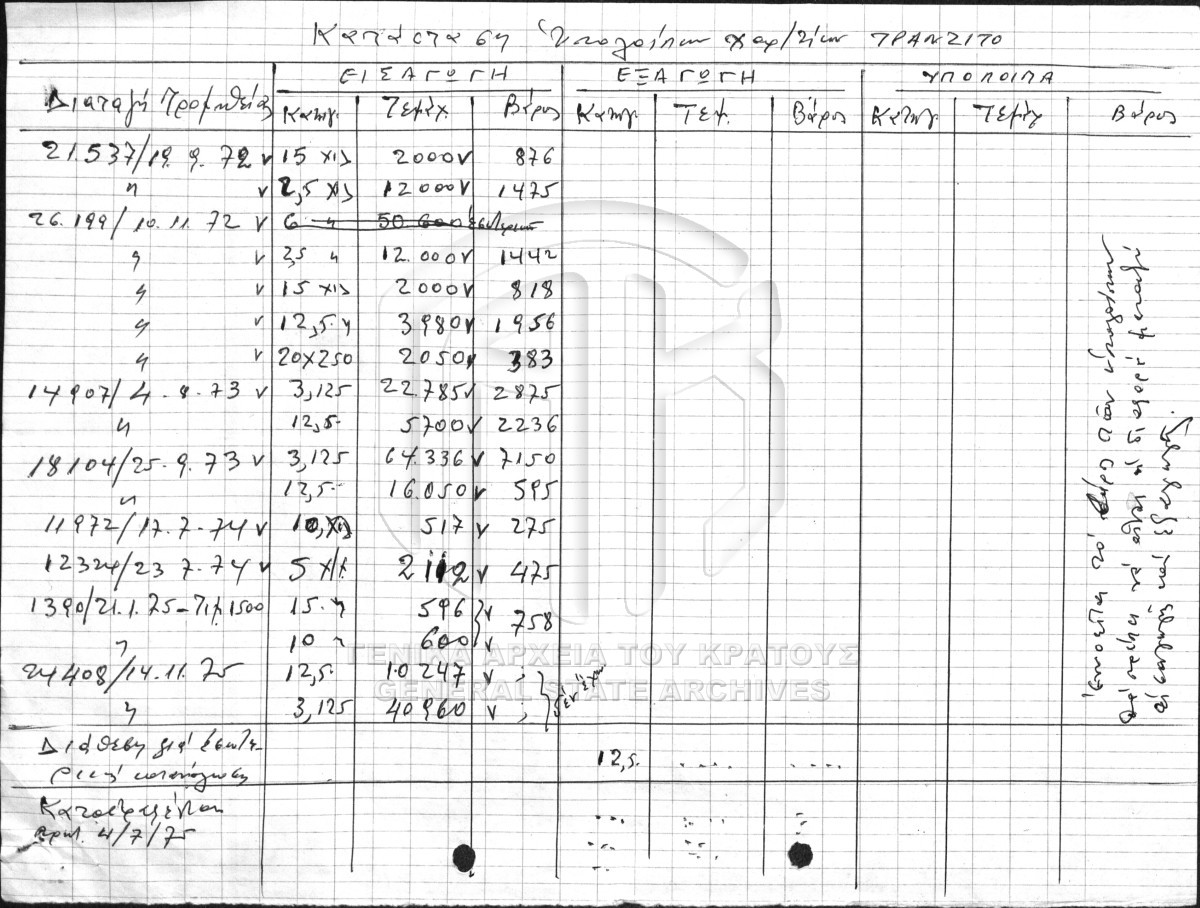 Κατάσταση Υπολοίπων χαρ/τίων ΤΡΑΝΖΙΤΟ
ΕΙΣΑΓΩΓΗ ΕΞΑΓΩΓΗ ΥΠΟΛΟΙΠΑ
Διαταγή Προμηθείας Κατηγ. Τεμάχ. Βάρος Κατηγ. Τεμ. Βάρος Κατηγ. Τεμάχ Βάρος
21.537/19.9.72 ν 15 χιλ 2000 ν 876
" ν 2,5 χιλ 12000 ν 1475
26.199/10.11.72 ν 6 " 50.600
" ν 2,5 " 12.000 ν 1442
" ν 15 χιλ 2000 ν 818
" ν 12,5 " 3980 ν 1956
" ν 20×250 2050 ν 383
14907/4.8.73 ν 3,125 22.785 ν 2875
" 12,5 5700 ν 2236
18104/25.9.73 ν 3,125 64.336 ν 7150
" 12,5 16.050 ν 595
11972/17.7.74 ν 10, χιλ 517 ν 275
12324/23 7.74 ν 5 χιλ 2112 ν 475
1390/21.1.75 1500 15 " 596 ν 758
" 10 " 600 ν
24408/14.11.75 12,5 10.247 ν ; δέν έχω
" 3,125 40960 ν ;
Διάθεση γιά έσωτε- 12,5. .... ....
ρική κατανάλωση
Κατεστραμένων
πρωτ. 4/7/75
ΓΕΝΙΚΑ ΑΡΧΕΙΑ ΤΟΥ ΚΡΑΤΟΥΣ
GENERAL STATE ARCHIVES